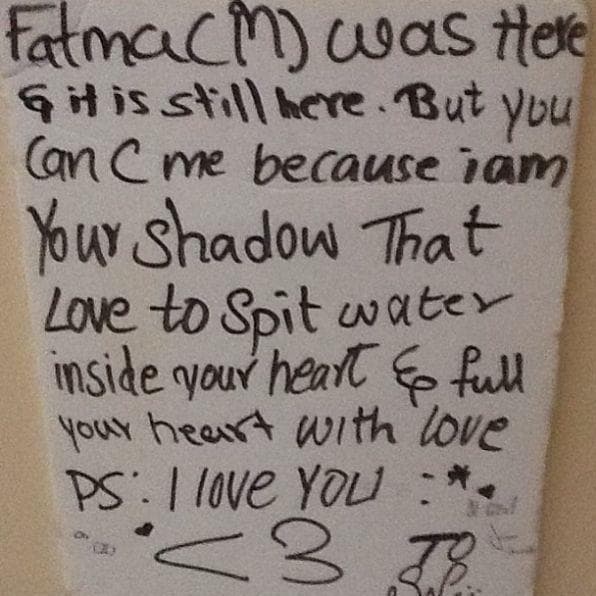 Fatma(M) was Here
& it is still here. But you
Can C me because i am
Your Shadow That
Love to Spit water
inside your heart & full
your heart with love
PS: I love YOU :*
<3 To